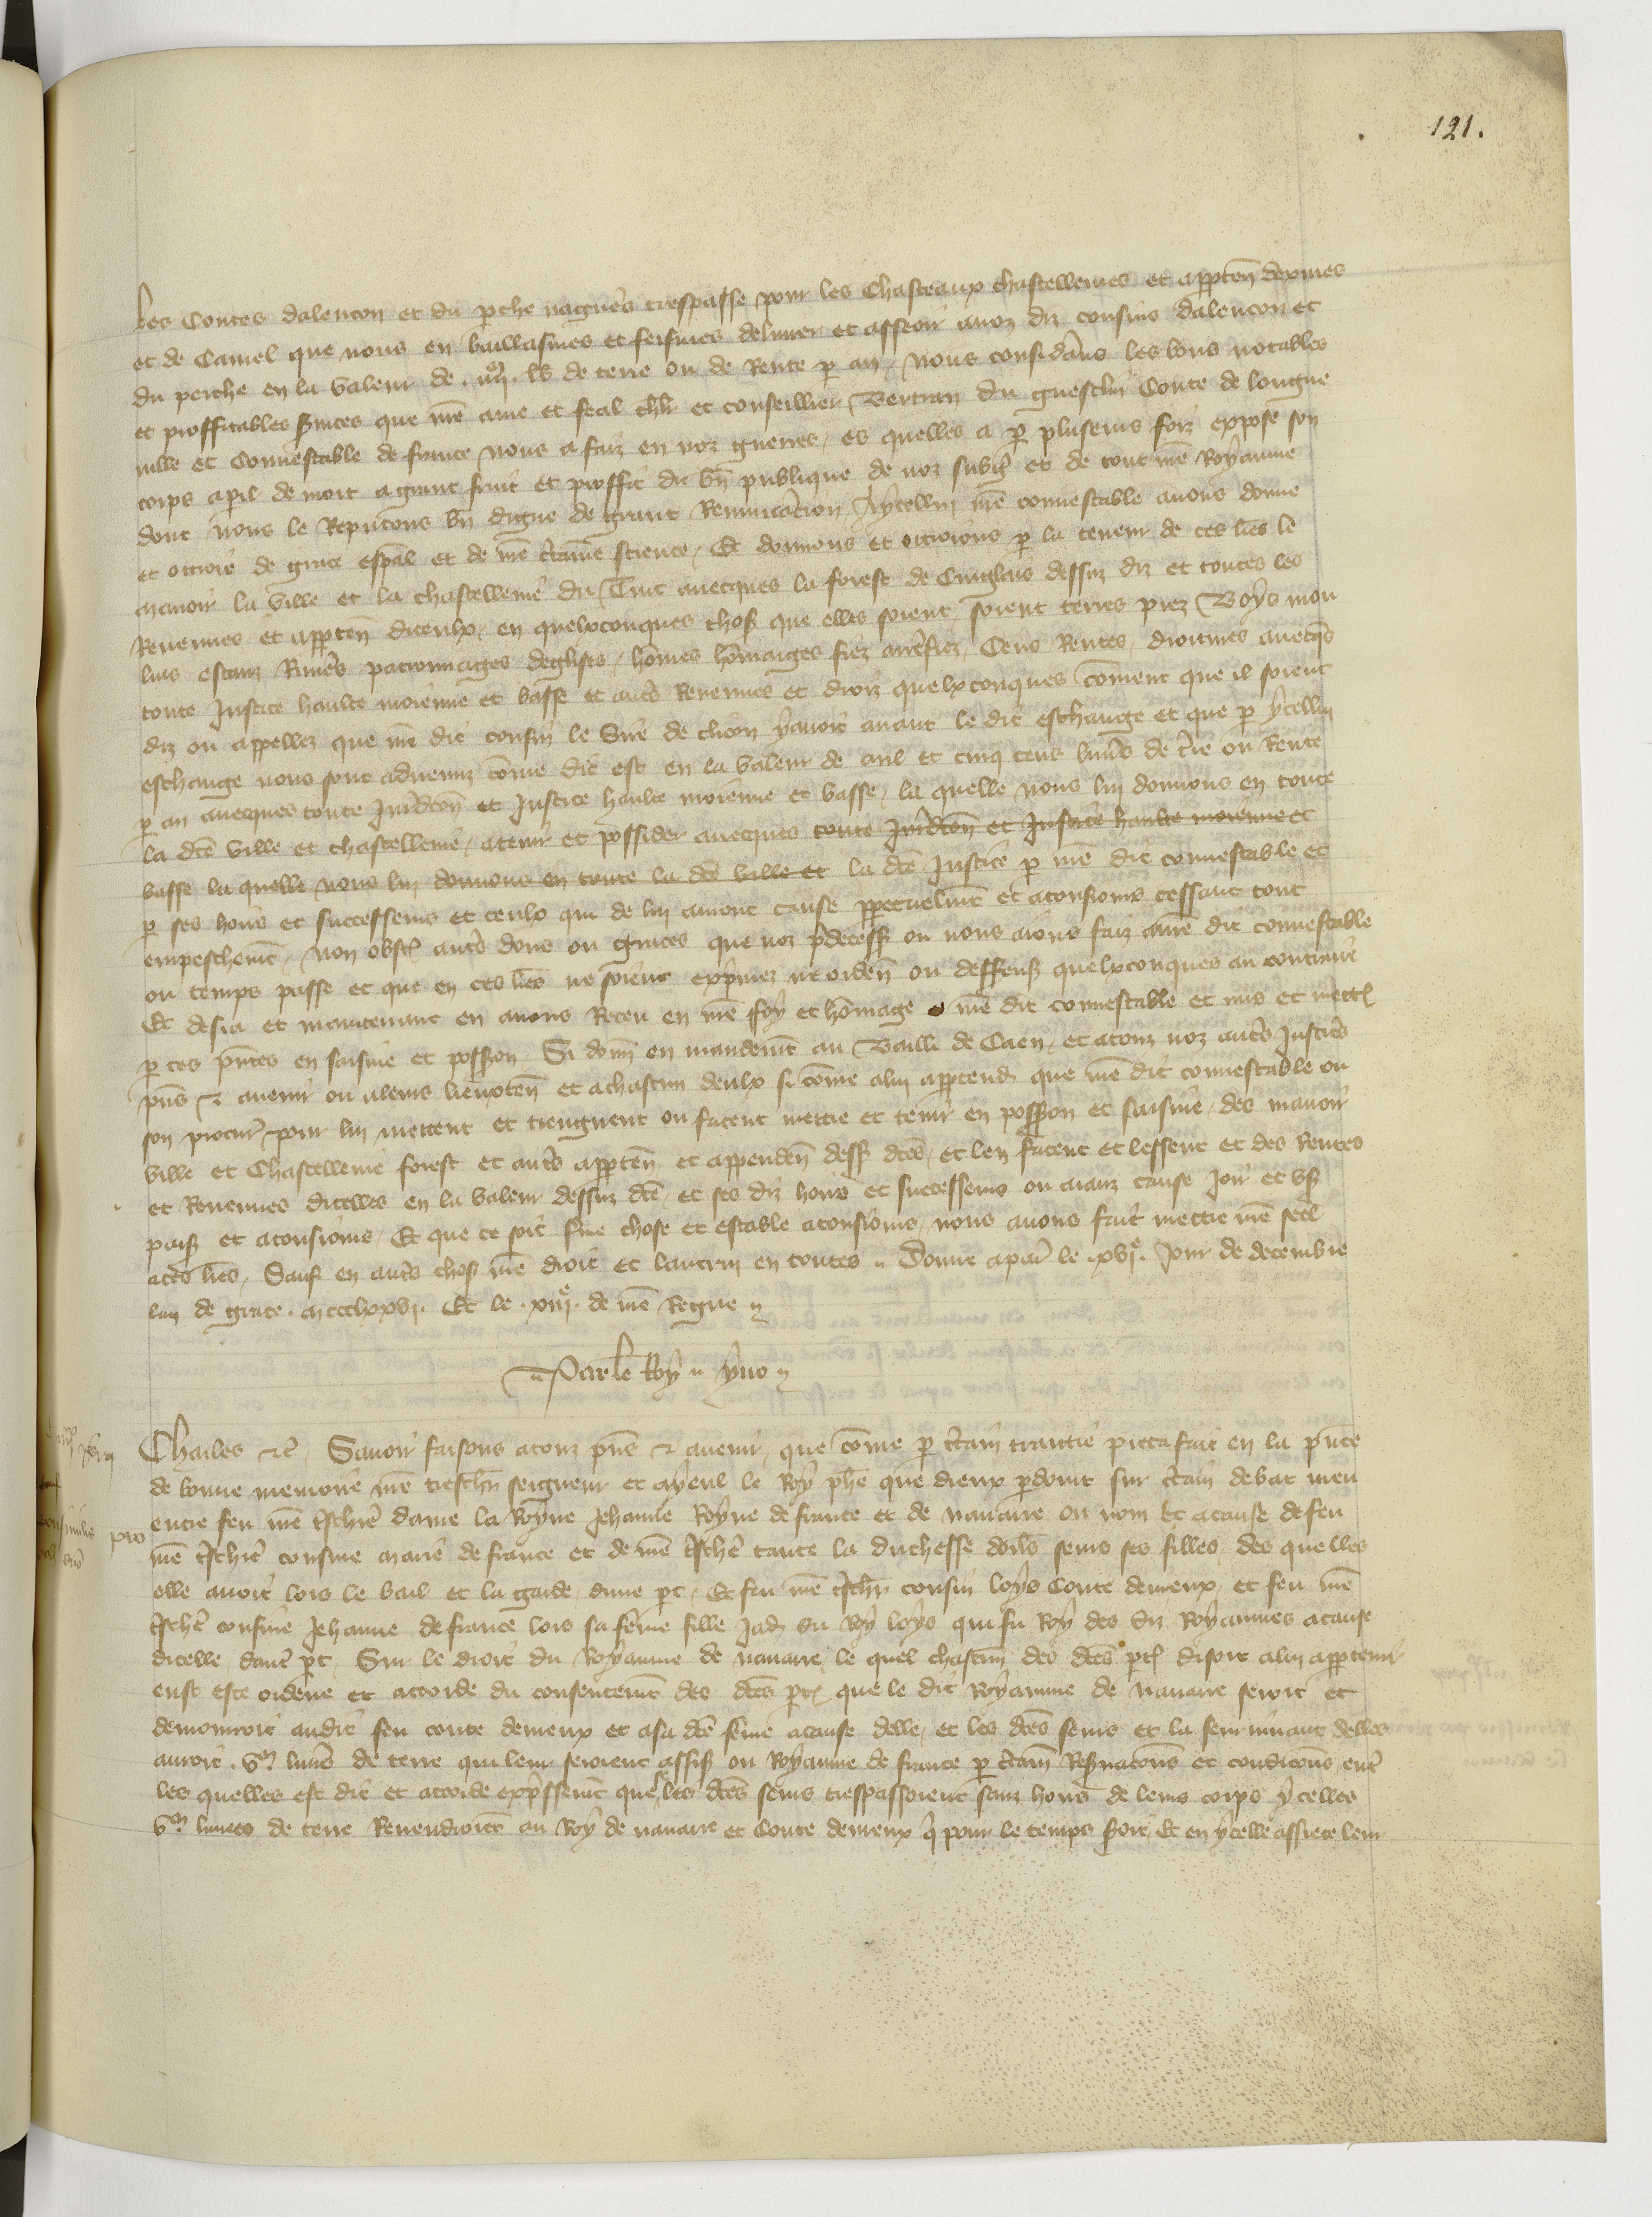 121.
les Contes dalencon et du pche nagueres trespasse pour les Chasteaux chastellenies et appteñ dexmes
et de Caniel que nous en baillasmes et feismes delivrer et asseoir a noz diz cousins dalencon et
du perche en la valeur de lb de terre ou de Rente p an, nous considans les bons notables
et prouffitables svices que nre ame et feal chlr et conseillier Bertran du guesclin Conte de longue
ville et Connestable de france nous a faiz en noz guerres, es quelles a p pluseurs foiz expose son
corps a peril de mort a grant fruit et proffit du bñ publique de noz subgiez et de tout nre Royaume
dont nous le Reputons bñ digne de grant Remuneracion, A ycellui nre connestable avons donne
et ottroie de grace espal et de nre ctaine science, Et donnons et ottroions p la teneur de ces lres le
manoir la ville et la chastellenie du Tuit avecques la forest de Cinglais dessuz diz et toutes les
Revenues et appteñ diceulx, en quelxconques choses que elles soient, soient terres prez Boys mou
lins estanz Rivieres patronnages deglises, hommes hommages fiez arrefiez, Cens Rentes, droitures avecqs
toute Justice haulte moienne et basse et autres Revenues et droiz quelxconques comment que il soient
diz ou appellez que nre dit cousin le Sire de clicon y avoit avant le dit eschange et que p ycellui
eschange nous sont advenuz come dit est en la valeur de mil et cinq cens livres de tre ou Rente
p an avecques toute Juridcoñ et Justice haulte moienne et basse, la quelle nous lui donnons en toute
la dce ville et chastellenie, a tenir et possider avecques toute Juridcoñ et Justice haulte moienne et
basse la quelle nous lui donnons en toute la dce ville et la dce Justice p nre dit connestable et
p ses hoirs et successeurs et ceulx qui de lui auront cause ppetuelmt et a tousiours cessant tout
empeschemt, Non obst autres dons ou graces que noz pdecess ou nous aions faiz a nre dit connestable
ou temps passe et que en ces lres ne soient exprimez ne ordeñ ou deffenses quelxconques au contraire
Et desia et maintenant en avons Receu en nre foy et hommage nre dit connestable et mis et mettons
p ces pntes en saisine et possession Si donñ en mandemt au Bailli de Caen, et a touz noz autres Justiciers
pns et avenir ou a leurs lieuxteñ et a chascun deulx si come a lui apptendra que nre dit connestable ou
son procur pour lui mettent et tiengnent ou facent mettre et tenir en possession et saisine, des manoir
ville et Chastellenie forest et autres apptenñ et appendeñ dess dces, et len facent et lessent et des Rentes
et Revenues dicelles en la valeur dessuz dce, et ses diz hoirs et successeurs ou aianz cause Joir et user
paisiblement et a tousiours, Et que ce soit ferme chose et estable a tousiours, nous avons fait mettre nre seel
a ces lres, Sauf en autres choses nre droit et lautrui en toutes. Donne a paris le .xvje. Jour de decembre
lan de grace .mccclxxvij. Et le .xiiije. de nre Regne
Par le Roy yvo
Charles etc Savoir faisons a touz pns et avenir, que come p ctain traittie pieca fait en la pnce
de bonne memoire nre treschr seigneur et ayeul le Roy phe que dieux pdoint sur ctain debat meu
entre feu nre tschiere dame la Royne Jehanne Royne de france et de navarre ou nom et a cause de feu
nre tschiere cousine marie de france et de nre tsche tante la duchesse dorls seurs ses filles, des quelles
elle avoit lors le bail et la garde, dune pt, Et feu nre tschr cousin loys Conte devreux, et feu nre
tsche cousine Jehanne de france lors sa femme fille Jadis du Roy loys qui fu Roy des diz Royaumes a cause
dicelle dautre pt, Sur le droit du Royaume de navarre, le quel chascun des dces pties disoit a lui apptenir
eust este ordene et accorde du consentemt des dces pties que le dit Royaume de navarre seroit et
demourroit audit feu conte devreux et a sa dce feme a cause delle, et les dces seurs et la survivant delles
auroit .vm livres de terre qui leur seroient assises ou Royaume de france p ctaines Resvacons et condicons, entre
les quelles est dit et accorde expressemt que se les dces seurs trespassoient sanz hoirs de leurs corps ycelles
vm livrees de terre Revendroient au Roy de navarre et Conte devreux q pour le temps seroit, Et en ycelle assiete leur